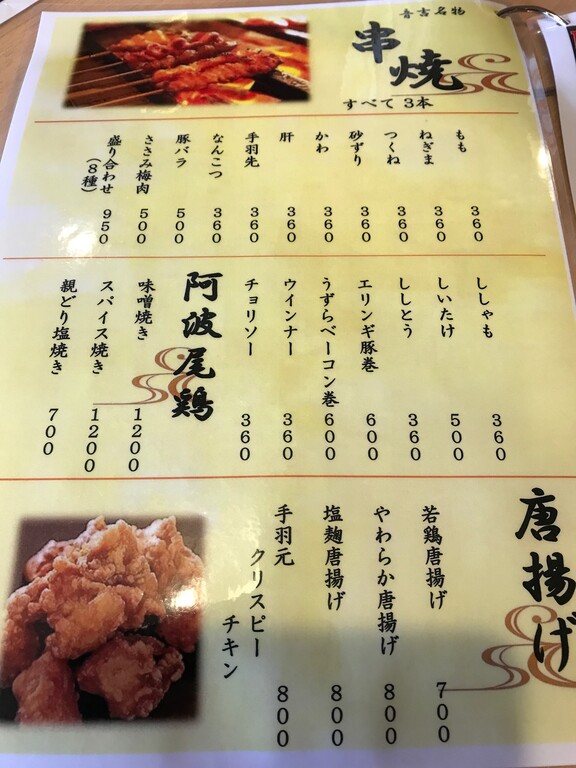 音吉名物
串焼
すべて 3本
もも 360
ねぎま 360
つくね 360
砂ずり 360
かわ 360
肝 360
手羽先 360
なんこつ 360
豚バラ 500
ささみ梅肉 500
盛り合わせ(8種) 950
ししゃも 360
しいたけ 500
ししとう 360
エリンギ豚巻 600
うずらベーコン巻 600
ウインナー 360
チョリソー 360
阿波尾鶏
味噌焼き 1200
スパイス焼き 1200
親どり塩焼き 700
唐揚げ
若鶏唐揚げ 700
やわらか唐揚げ 800
塩麹唐揚げ 800
手羽元 800
クリスピー
チキン